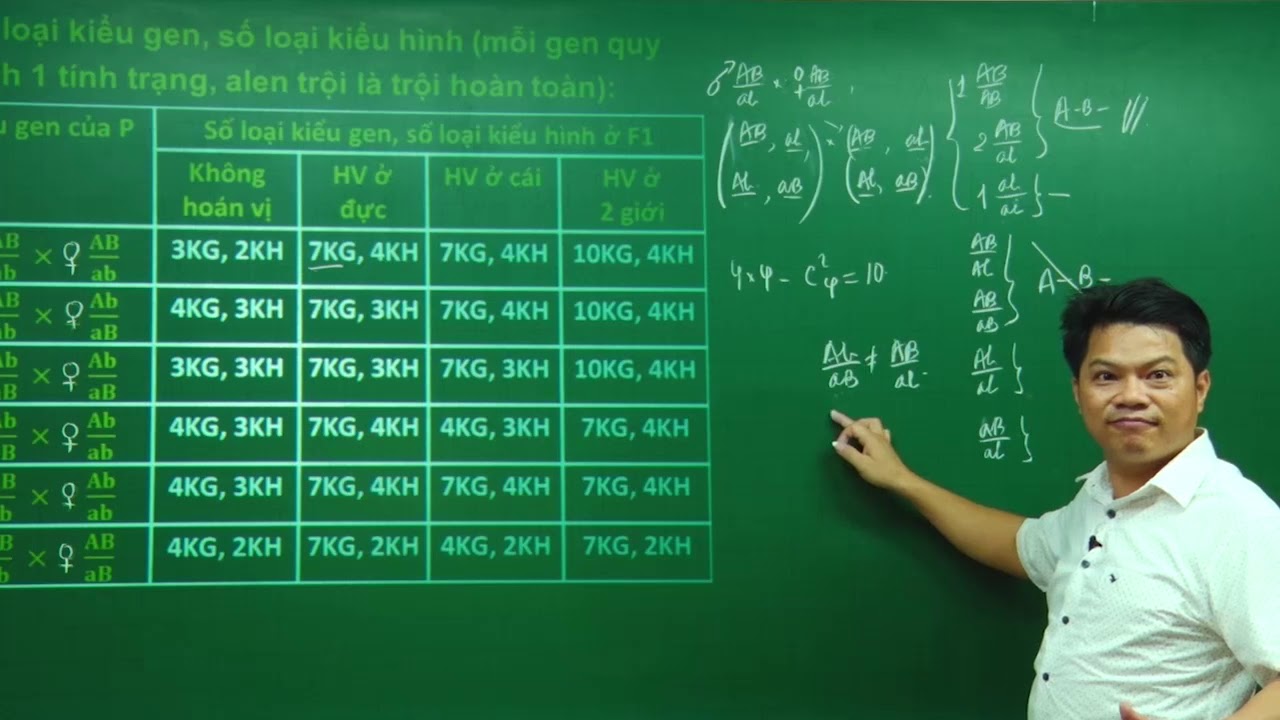 loại kiểu gen, số loại kiểu hình (mỗi gen quy
h 1 tính trạng, alen trội là trội hoàn toàn):
u gen của P
Số loại kiểu gen, số loại kiểu hình ở F1
Không hoán vị
HV ở đực
HV ở cái
HV ở 2 giới
AB/ab × ♀ AB/ab 3KG, 2KH 7KG, 4KH 7KG, 4KH 10KG, 4KH
AB/ab × ♀ Ab/aB 4KG, 3KH 7KG, 3KH 7KG, 4KH 10KG, 4KH
Ab/aB × ♀ Ab/aB 3KG, 3KH 7KG, 3KH 7KG, 3KH 10KG, 4KH
b/B × ♀ Ab/ab 4KG, 3KH 7KG, 4KH 4KG, 3KH 7KG, 4KH
B/b × ♀ Ab/ab 4KG, 3KH 7KG, 4KH 7KG, 4KH 7KG, 4KH
B/b × ♀ AB/aB 4KG, 2KH 7KG, 2KH 4KG, 2KH 7KG, 2KH
♂ AB/ab × ♀ AB/ab
(AB, ab, Ab, aB) × (AB, ab, Ab, aB)
4×4 - C²4 = 10
Ab/aB ≠ AB/ab
1 AB/AB
2 AB/ab
A-B-
1 ab/ab
AB/Ab
AB/aB
A-B-
Ab/ab
aB/ab